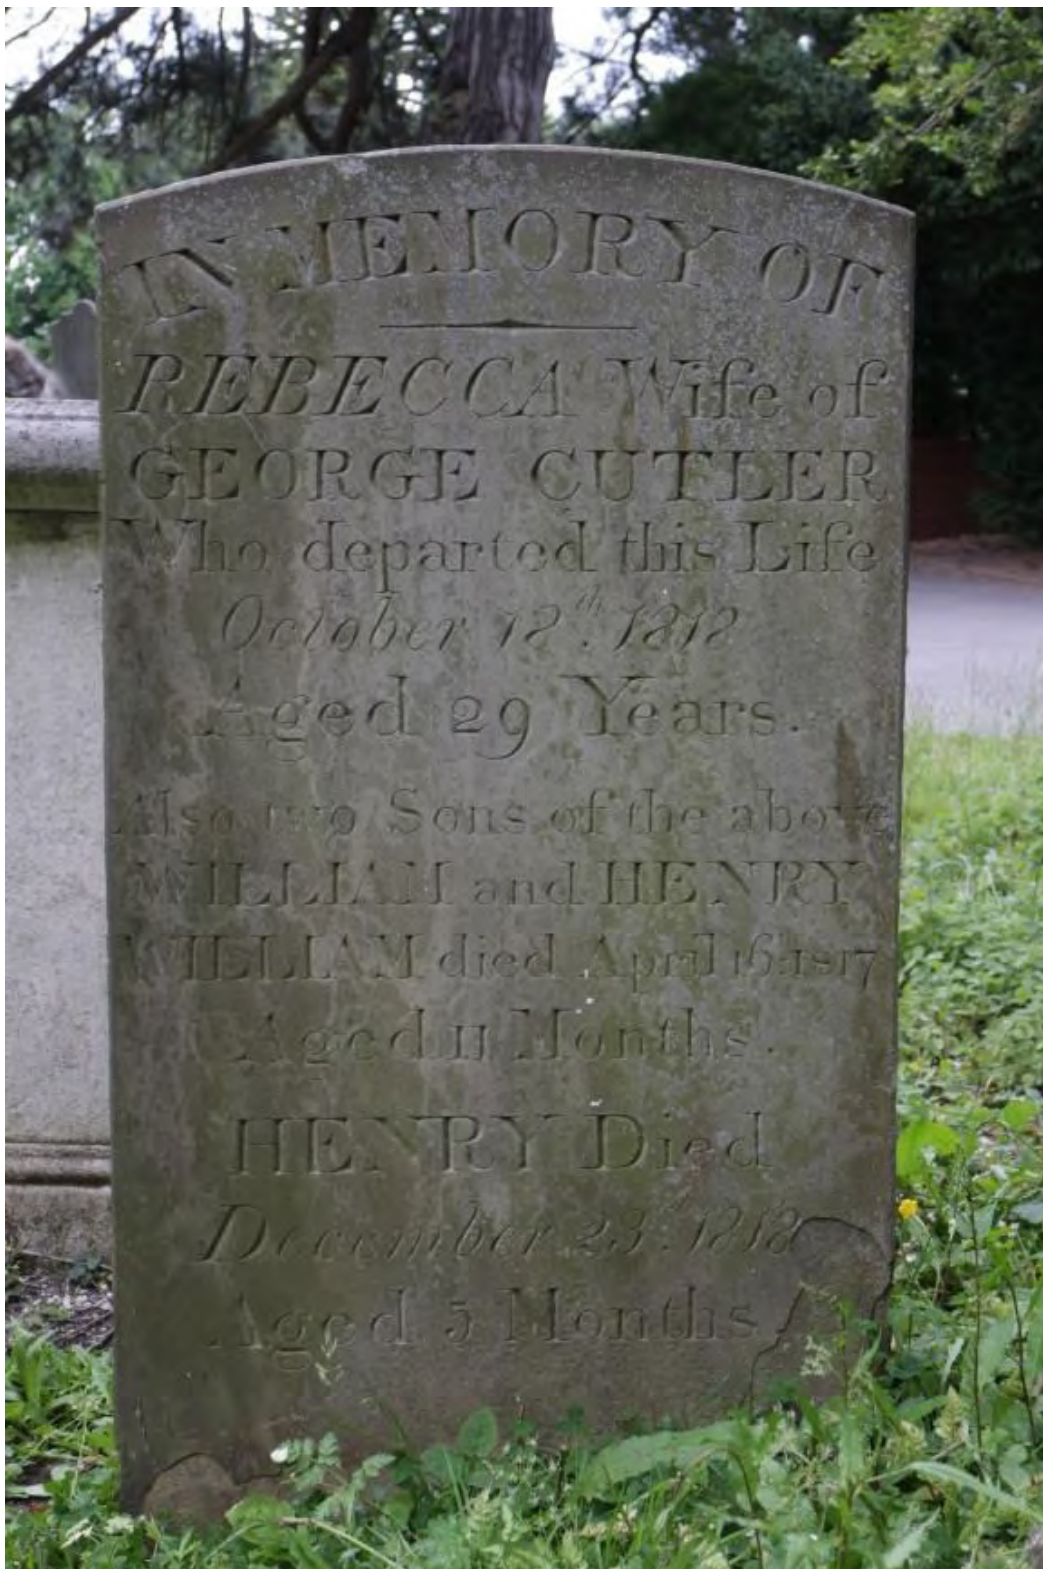 IN MEMORY OF
REBECCA Wife of
GEORGE CUTLER
Who departed this Life
October 12th. 1818
Aged 29 Years.
Also two Sons of the above
WILLIAM and HENRY
WILLIAM died April 16: 1817
Aged 11 Months.
HENRY Died
December 23d. 1818
Aged 5 Months